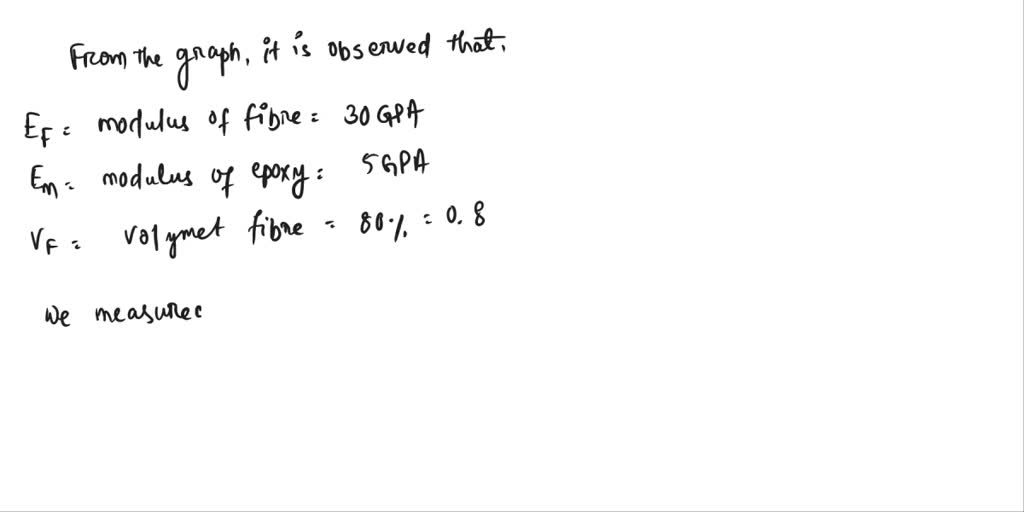 From the graph, it is observed that,
EF = modulus of fibre = 30 GPA
Em = modulus of epoxy = 5 GPA
VF = volymet fibre = 80% = 0.8
we measurec